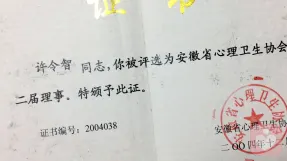 证书
许令智 同志，你被评选为安徽省心理卫生协会
二届理事。特颁予此证。
证书编号：2004038
安徽省心理卫生协
二〇〇四年十